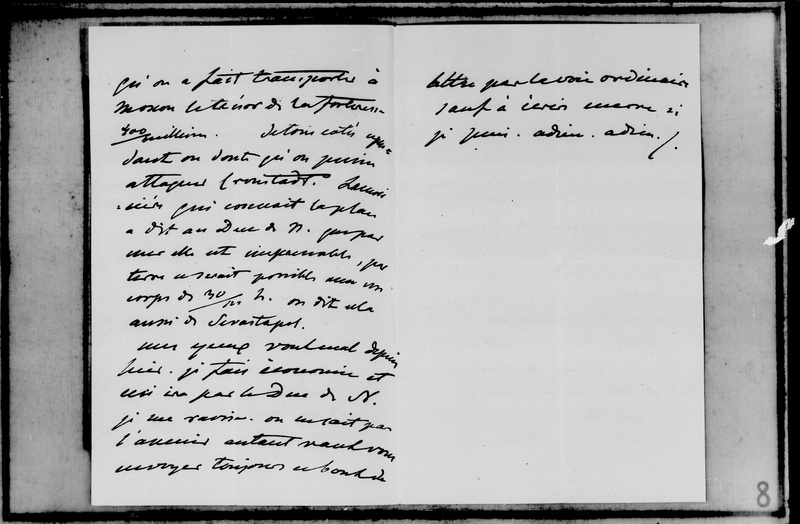 qu'on a fait transporter à
Moscou le trésor de la forteresse
300 millions. de tous côtés cepen=
dant on doute qu'on puisse
attaquer Cronstadt. Lamori
=cière qui connait la place
a dit au Duc de N. que par
mer elle est imprenable, par
terre ce serait possible avec un
corps de 30/m h. on dit cela
aussi de Sevastopol.
mes yeux vont mal depuis
hier. je fais économie et
ceci ira par le Duc de N.
je me ravise. on ne sait pas
l'avenir autant vaut vous
envoyer toujours ce bout de
lettre par la voie ordinaire
sauf à écrire encore si
je puis. adieu. adieu.
8